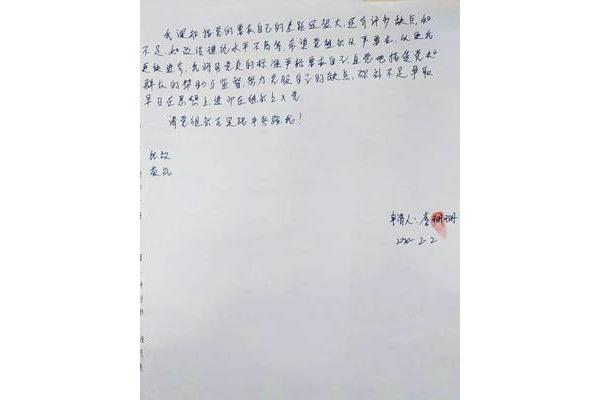 我深知按党的要求自己的差距还很大,还有许多缺点和
不足,如政治理论水平不高等。希望党组织从严要求,以使我
更快进步。我将用党员的标准严格要求自己,自觉地接受党和
群众的帮助与监督,努力克服自己的缺点,弥补不足,争取
早日在思想上,进而在组织上入党
请党组织在实践中考验我!
此致
敬礼
申请人:
2.2